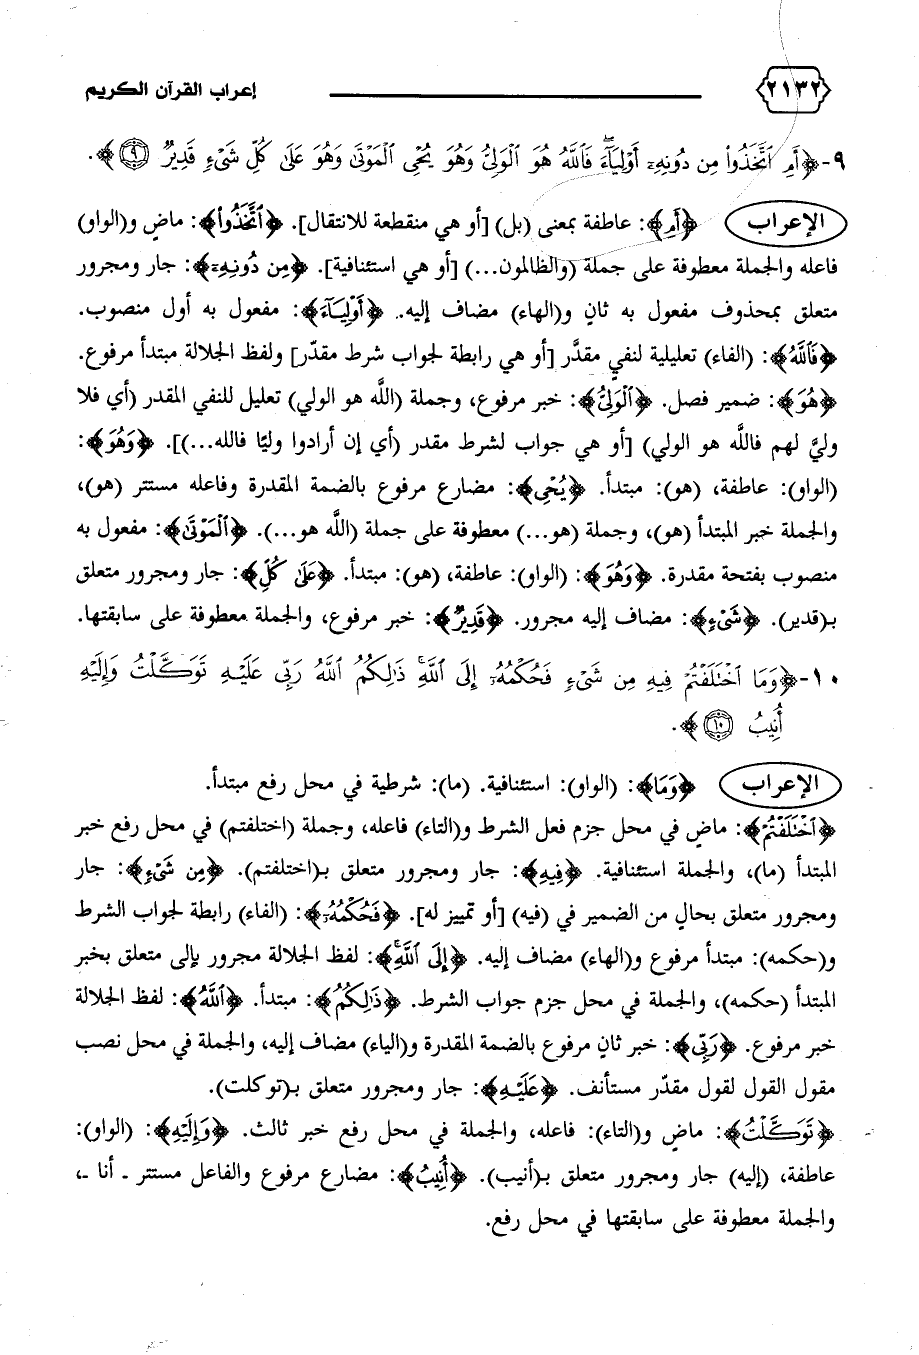 ٢١٣٢ إعراب القرآن الكريم
٩- ﴿أَمِ ٱتَّخَذُوا۟ مِن دُونِهِۦٓ أَوْلِيَآءَ ۖ فَٱللَّهُ هُوَ ٱلْوَلِىُّ وَهُوَ يُحْىِ ٱلْمَوْتَىٰ وَهُوَ عَلَىٰ كُلِّ شَىْءٍ قَدِيرٌ ٩﴾.
الإعراب ﴿أَمِ﴾: عاطفة بمعنى (بل) [أو هي منقطعة للانتقال]. ﴿ٱتَّخَذُوا۟﴾: ماضٍ و(الواو)
فاعله والجملة معطوفة على جملة (والظالمون...) [أو هي استئنافية]. ﴿مِن دُونِهِۦٓ﴾: جار ومجرور
متعلق بمحذوف مفعول به ثانٍ و(الهاء) مضاف إليه. ﴿أَوْلِيَآءَ﴾: مفعول به أول منصوب.
﴿فَٱللَّهُ﴾: (الفاء) تعليلية لنفي مقدَّر [أو هي رابطة لجواب شرط مقدّر] ولفظ الجلالة مبتدأ مرفوع.
﴿هُوَ﴾: ضمير فصل. ﴿ٱلْوَلِىُّ﴾: خبر مرفوع، وجملة (اللَّه هو الولي) تعليل للنفي المقدر (أي فلا
وليَّ لهم فاللَّه هو الولي) [أو هي جواب لشرط مقدر (أي إن أرادوا وليًا فالله...)]. ﴿وَهُوَ﴾:
(الواو): عاطفة، (هو): مبتدأ. ﴿يُحْىِ﴾: مضارع مرفوع بالضمة المقدرة وفاعله مستتر (هو)،
والجملة خبر المبتدأ (هو)، وجملة (هو...) معطوفة على جملة (اللَّه هو...). ﴿ٱلْمَوْتَىٰ﴾: مفعول به
منصوب بفتحة مقدرة. ﴿وَهُوَ﴾: (الواو): عاطفة، (هو): مبتدأ. ﴿عَلَىٰ كُلِّ﴾: جار ومجرور متعلق
بـ(قدير). ﴿شَىْءٍ﴾: مضاف إليه مجرور. ﴿قَدِيرٌ﴾: خبر مرفوع، والجملة معطوفة على سابقتها.
١٠- ﴿وَمَا ٱخْتَلَفْتُمْ فِيهِ مِن شَىْءٍ فَحُكْمُهُۥٓ إِلَى ٱللَّهِ ۚ ذَٰلِكُمُ ٱللَّهُ رَبِّى عَلَيْهِ تَوَكَّلْتُ وَإِلَيْهِ
أُنِيبُ ١٠﴾.
الإعراب ﴿وَمَا﴾: (الواو): استئنافية. (ما): شرطية في محل رفع مبتدأ.
﴿ٱخْتَلَفْتُمْ﴾: ماضٍ في محل جزم فعل الشرط و(التاء) فاعله، وجملة (اختلفتم) في محل رفع خبر
المبتدأ (ما)، والجملة استئنافية. ﴿فِيهِ﴾: جار ومجرور متعلق بـ(اختلفتم). ﴿مِن شَىْءٍ﴾: جار
ومجرور متعلق بحالٍ من الضمير في (فيه) [أو تمييز له]. ﴿فَحُكْمُهُۥٓ﴾: (الفاء) رابطة لجواب الشرط
و(حكمه): مبتدأ مرفوع و(الهاء) مضاف إليه. ﴿إِلَى ٱللَّهِ ۚ﴾: لفظ الجلالة مجرور بإلى متعلق بخبر
المبتدأ (حكمه)، والجملة في محل جزم جواب الشرط. ﴿ذَٰلِكُمُ﴾: مبتدأ. ﴿ٱللَّهُ﴾: لفظ الجلالة
خبر مرفوع. ﴿رَبِّى﴾: خبر ثانٍ مرفوع بالضمة المقدرة و(الياء) مضاف إليه، والجملة في محل نصب
مقول القول لقول مقدّر مستأنف. ﴿عَلَيْهِ﴾: جار ومجرور متعلق بـ(توكلت).
﴿تَوَكَّلْتُ﴾: ماضٍ و(التاء): فاعله، والجملة في محل رفع خبر ثالث. ﴿وَإِلَيْهِ﴾: (الواو):
عاطفة، (إليه) جار ومجرور متعلق بـ(أنيب). ﴿أُنِيبُ﴾: مضارع مرفوع والفاعل مستتر ـ أنا ـ،
والجملة معطوفة على سابقتها في محل رفع.